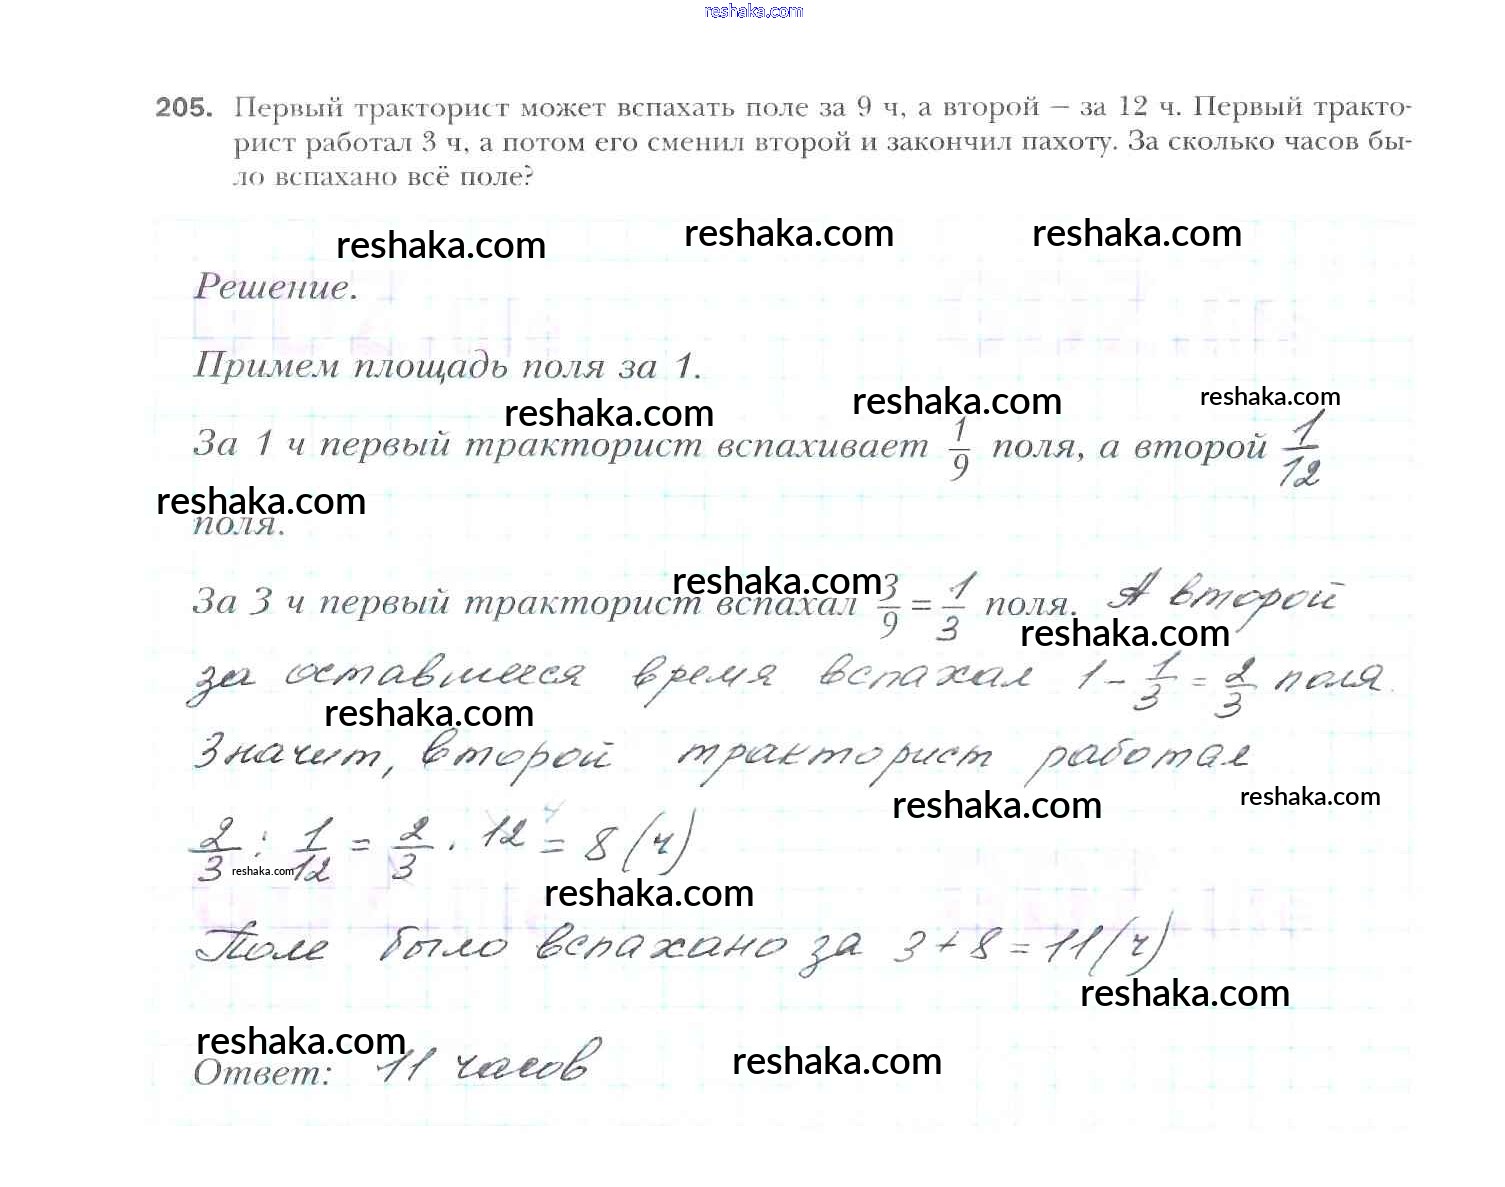 reshaka.com
205. Первый тракторист может вспахать поле за 9 ч, а второй – за 12 ч. Первый тракто-
рист работал 3 ч, а потом его сменил второй и закончил пахоту. За сколько часов бы-
ло вспахано всё поле?
reshaka.com reshaka.com reshaka.com
Решение.
Примем площадь поля за 1.
reshaka.com reshaka.com reshaka.com
За 1 ч первый тракторист вспахивает 1/9 поля, а второй 1/12
reshaka.com
поля.
reshaka.com
За 3 ч первый тракторист вспахал 3/9 = 1/3 поля. А второй
reshaka.com
за оставшееся время вспахал 1 - 1/3 = 2/3 поля.
reshaka.com
Значит, второй тракторист работал
reshaka.com reshaka.com
2/3 : 1/12 = 2/3 · 12 = 8 (ч)
reshaka.com
reshaka.com
Поле было вспахано за 3 + 8 = 11 (ч)
reshaka.com
reshaka.com reshaka.com
Ответ: 11 часов